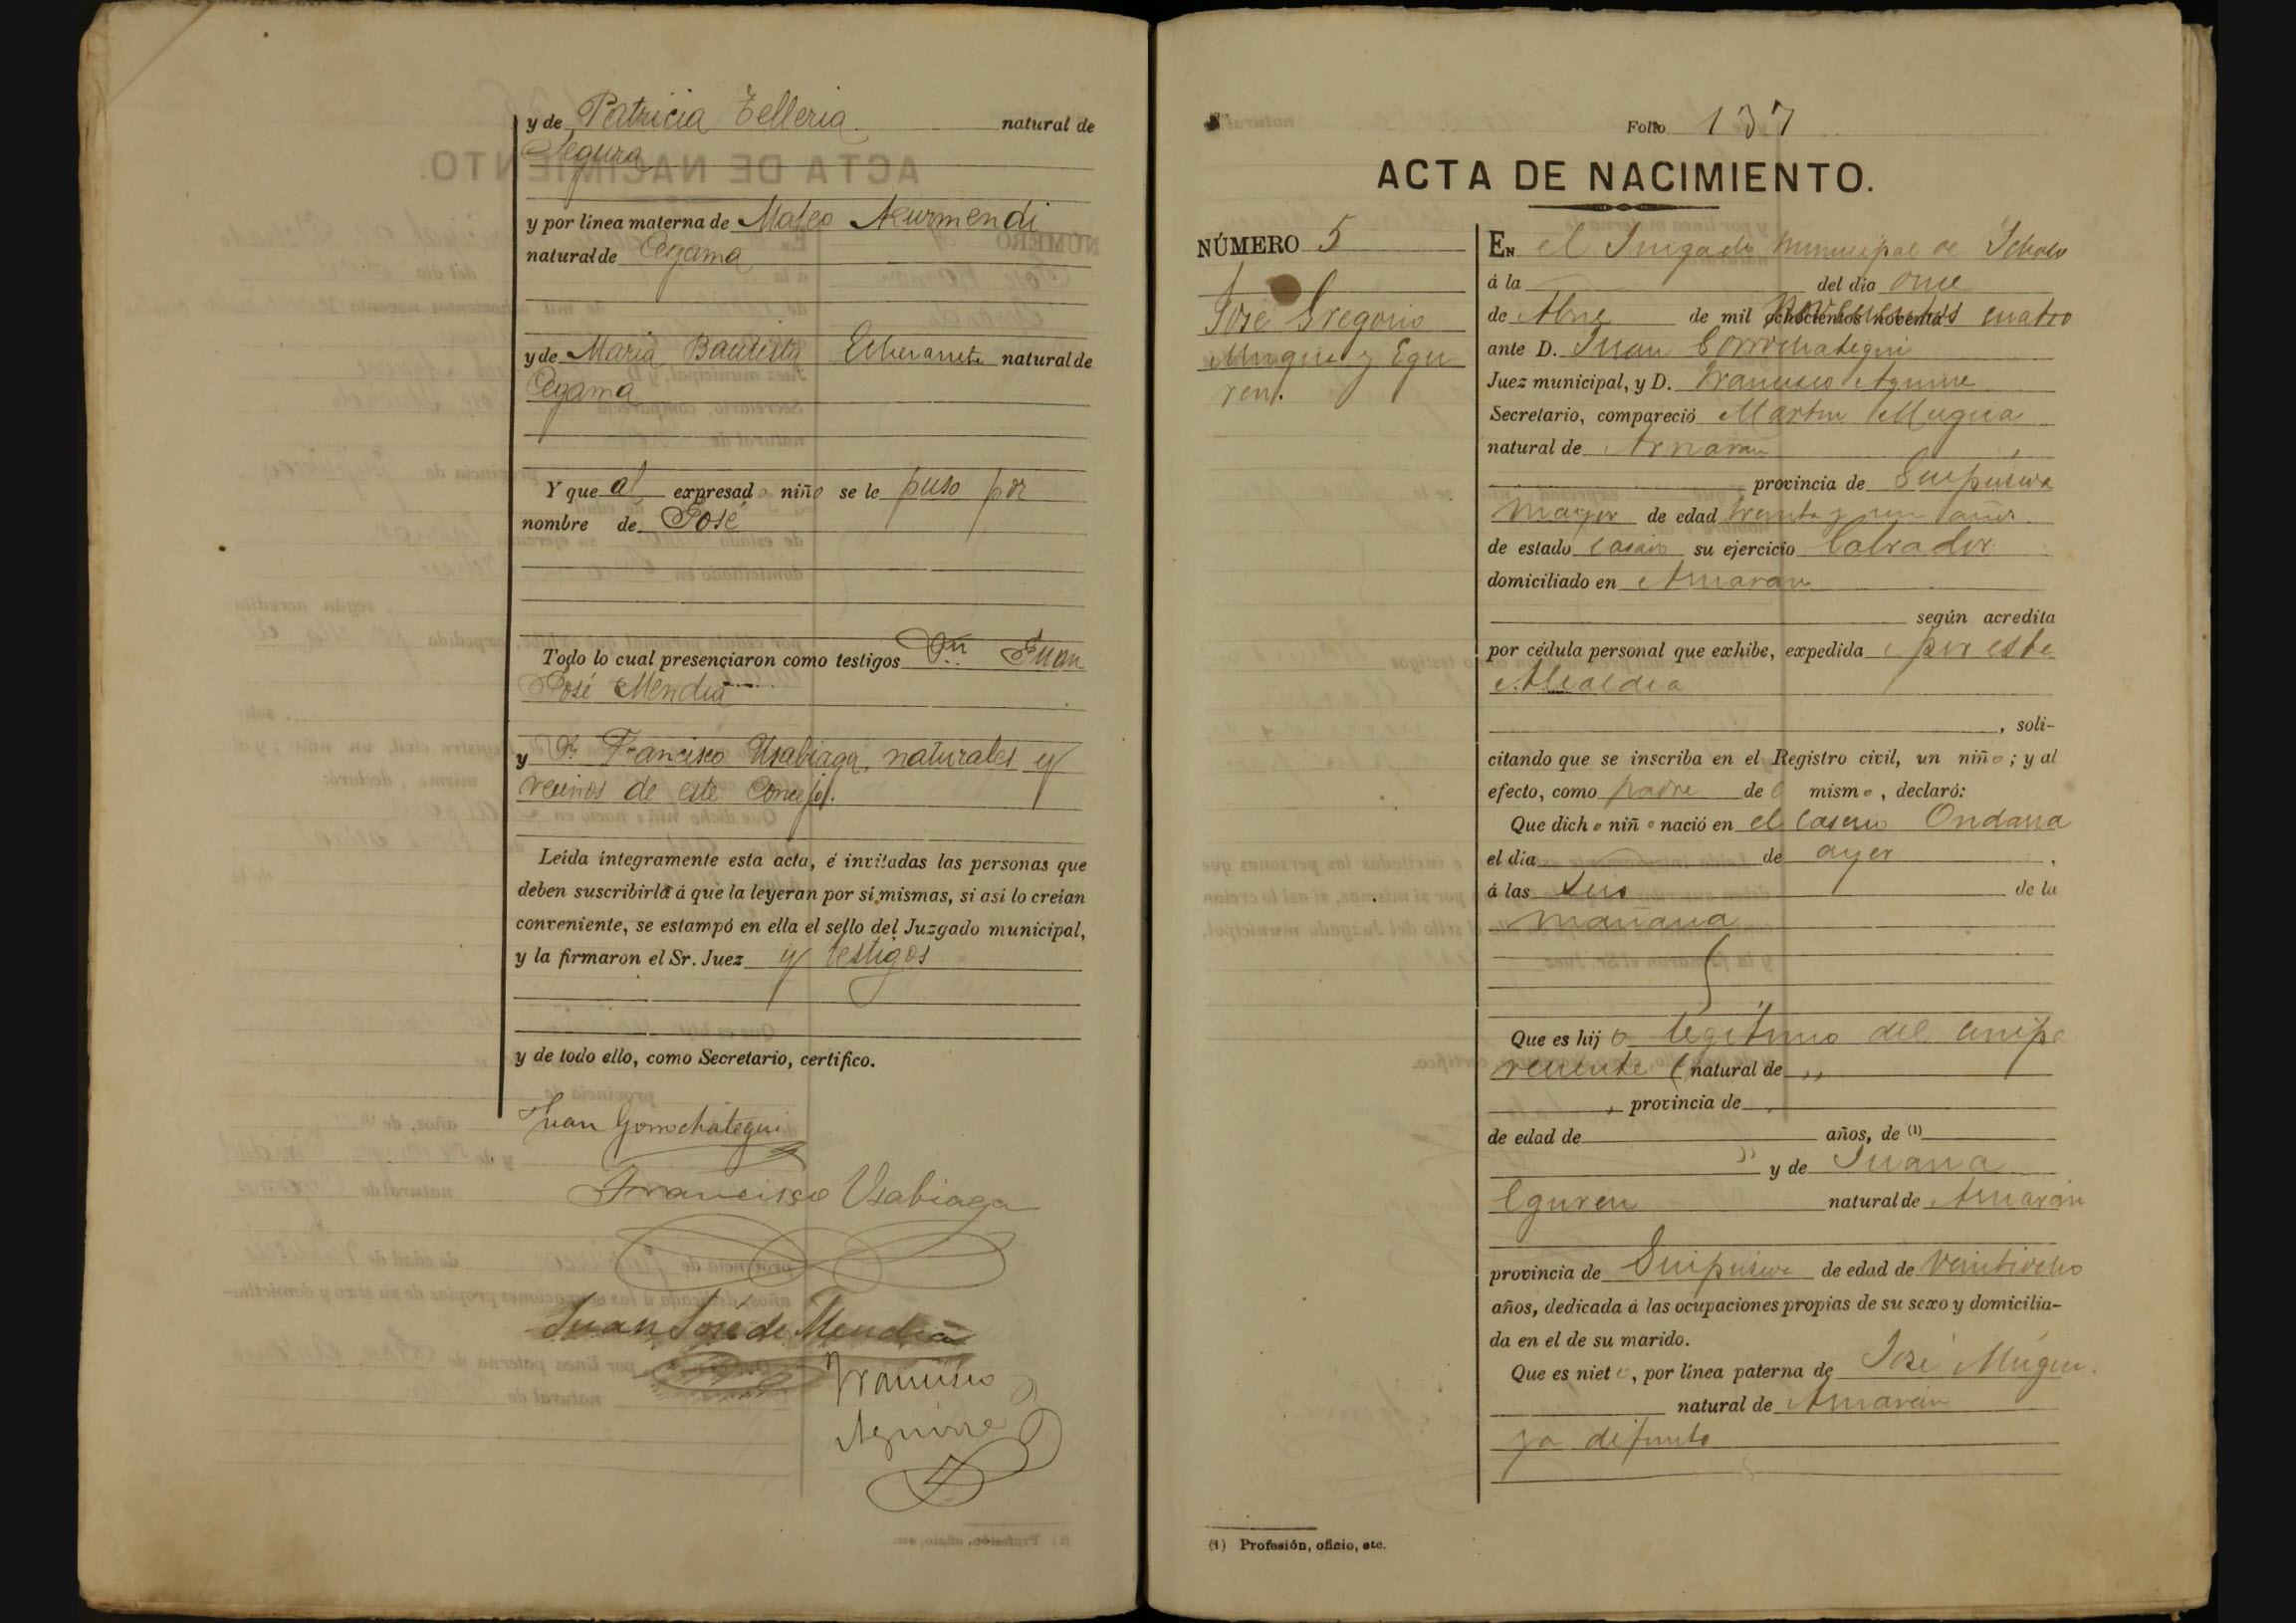 y de Patricia Telleria natural de
Segura
y por línea materna de Mateo Azurmendi
natural de Cegama
y de Maria Bautista Echeverrete natural de
Cegama
Y que al expresado niño se le puso por
nombre de José
Todo lo cual presenciaron como testigos Dn. Juan
José Mendia
y Dn. Francisco Usabiaga, naturales y
vecinos de este Concejo.
Leída íntegramente esta acta, é invitadas las personas que
deben suscribirla á que la leyeran por sí mismas, si así lo creían
conveniente, se estampó en ella el sello del Juzgado municipal,
y la firmaron el Sr. Juez y testigos
y de todo ello, como Secretario, certifico.
Juan Gorrochategui
Francisco Usabiaga
Juan José de Mendia
Francisco
Aguirre
Folio 137
ACTA DE NACIMIENTO.
NÚMERO 5
José Gregorio
Mugica y Egu
ren.
EN el Juzgado Municipal de Ichaso
á la del día once
de Abril de mil ochocientos noventa novecientos cuatro
ante D. Juan Gorrochategui
Juez municipal, y D. Francisco Aguirre
Secretario, compareció Martin Mugica
natural de Arriaran
provincia de Guipuzcoa
mayor de edad treinta y un años
de estado casado su ejercicio labrador
domiciliado en Arriaran
según acredita
por cédula personal que exhibe, expedida por esta
Alcaldia
, soli-
citando que se inscriba en el Registro civil, un niño; y al
efecto, como padre del mismo, declaró:
Que dicho niño nació en el Caserio Ondarra
el día de ayer,
á las seis de la
mañana
Que es hijo legitimo del compa
reciente natural de „
, provincia de ,
de edad de años, de (1)
„ y de Juana
Eguren natural de Arriaran
provincia de Guipuzcoa de edad de veintiocho
años, dedicada á las ocupaciones propias de su sexo y domicilia-
da en el de su marido.
Que es nieto, por línea paterna de José Mugica
natural de Arriaran
ya difunto
(1) Profesión, oficio, etc.